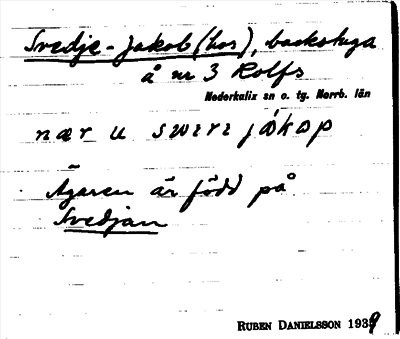 Svedje-Jakob (hos), backstuga
å nr 3 Rolfs
Nederkalix sn o. tg. Norrb. län
nær u swɛrɛ jákɒp
Ägaren är född på
Svedjan
RUBEN DANIELSSON 1939